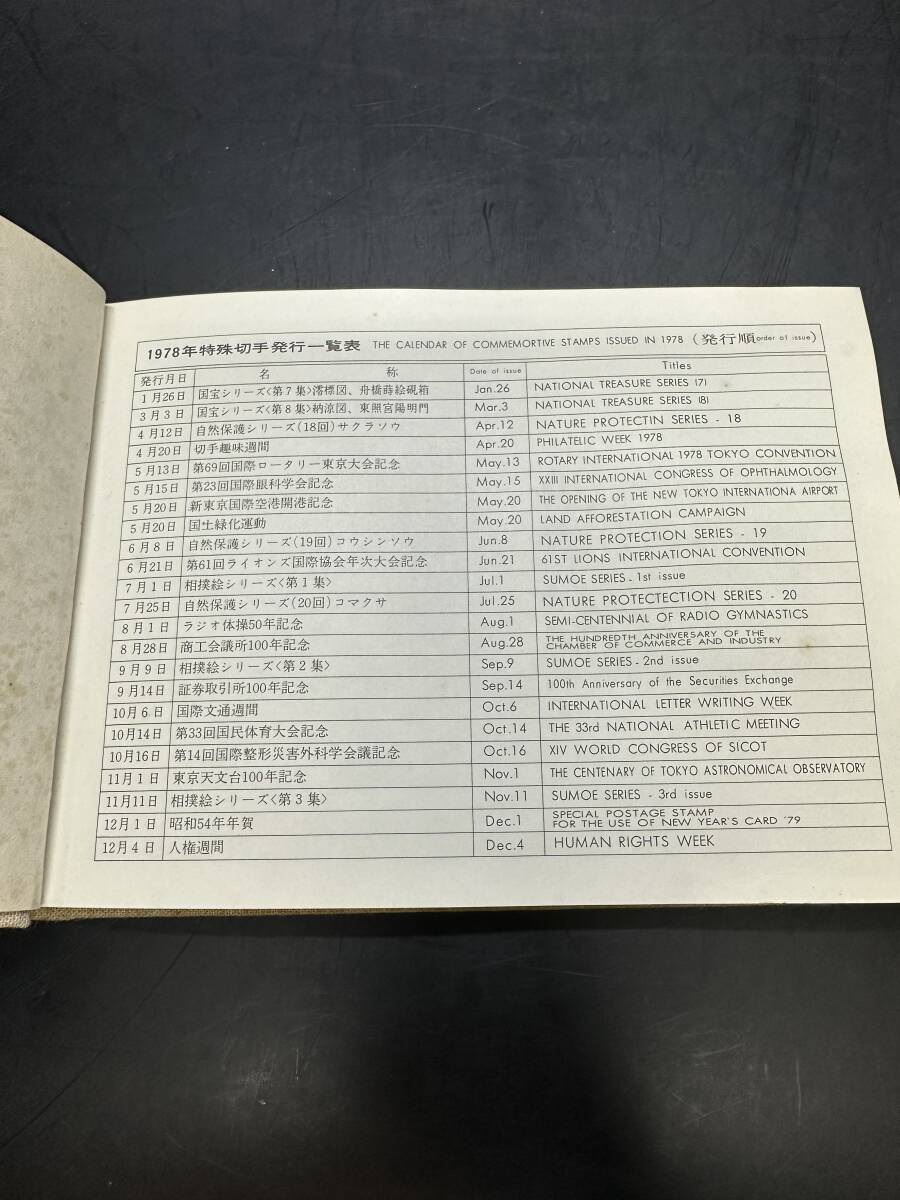 1978年特殊切手発行一覧表 THE CALENDAR OF COMMEMORTIVE STAMPS ISSUED IN 1978 (発行順order of issue)
発行月日 名 称 Date of issue Titles
1月26日 国宝シリーズ<第7集>澪標図、舟橋蒔絵硯箱 Jan.26 NATIONAL TREASURE SERIES (7)
3月3日 国宝シリーズ<第8集>納涼図、東照宮陽明門 Mar.3 NATIONAL TREASURE SERIES (8)
4月12日 自然保護シリーズ(18回)サクラソウ Apr.12 NATURE PROTECTIN SERIES - 18
4月20日 切手趣味週間 Apr.20 PHILATELIC WEEK 1978
5月13日 第69回国際ロータリー東京大会記念 May.13 ROTARY INTERNATIONAL 1978 TOKYO CONVENTION
5月15日 第23回国際眼科学会記念 May.15 XXIII INTERNATIONAL CONGRESS OF OPHTHALMOLOGY
5月20日 新東京国際空港開港記念 May.20 THE OPENING OF THE NEW TOKYO INTERNATIONA AIRPORT
5月20日 国土緑化運動 May.20 LAND AFFORESTATION CAMPAIGN
6月8日 自然保護シリーズ(19回)コウシンソウ Jun.8 NATURE PROTECTION SERIES - 19
6月21日 第61回ライオンズ国際協会年次大会記念 Jun.21 61ST LIONS INTERNATIONAL CONVENTION
7月1日 相撲絵シリーズ<第1集> Jul.1 SUMOE SERIES - 1st issue
7月25日 自然保護シリーズ(20回)コマクサ Jul.25 NATURE PROTECTECTION SERIES - 20
8月1日 ラジオ体操50年記念 Aug.1 SEMI-CENTENNIAL OF RADIO GYMNASTICS
8月28日 商工会議所100年記念 Aug.28 THE HUNDREDTH ANNIVERSARY OF THE
CHAMBER OF COMMERCE AND INDUSTRY
9月9日 相撲絵シリーズ<第2集> Sep.9 SUMOE SERIES - 2nd issue
9月14日 証券取引所100年記念 Sep.14 100th Anniversary of the Securities Exchange
10月6日 国際文通週間 Oct.6 INTERNATIONAL LETTER WRITING WEEK
10月14日 第33回国民体育大会記念 Oct.14 THE 33rd NATIONAL ATHLETIC MEETING
10月16日 第14回国際整形災害外科学会議記念 Oct.16 XIV WORLD CONGRESS OF SICOT
11月1日 東京天文台100年記念 Nov.1 THE CENTENARY OF TOKYO ASTRONOMICAL OBSERVATORY
11月11日 相撲絵シリーズ<第3集> Nov.11 SUMOE SERIES - 3rd issue
12月1日 昭和54年年賀 Dec.1 SPECIAL POSTAGE STAMP
FOR THE USE OF NEW YEAR'S CARD '79
12月4日 人権週間 Dec.4 HUMAN RIGHTS WEEK